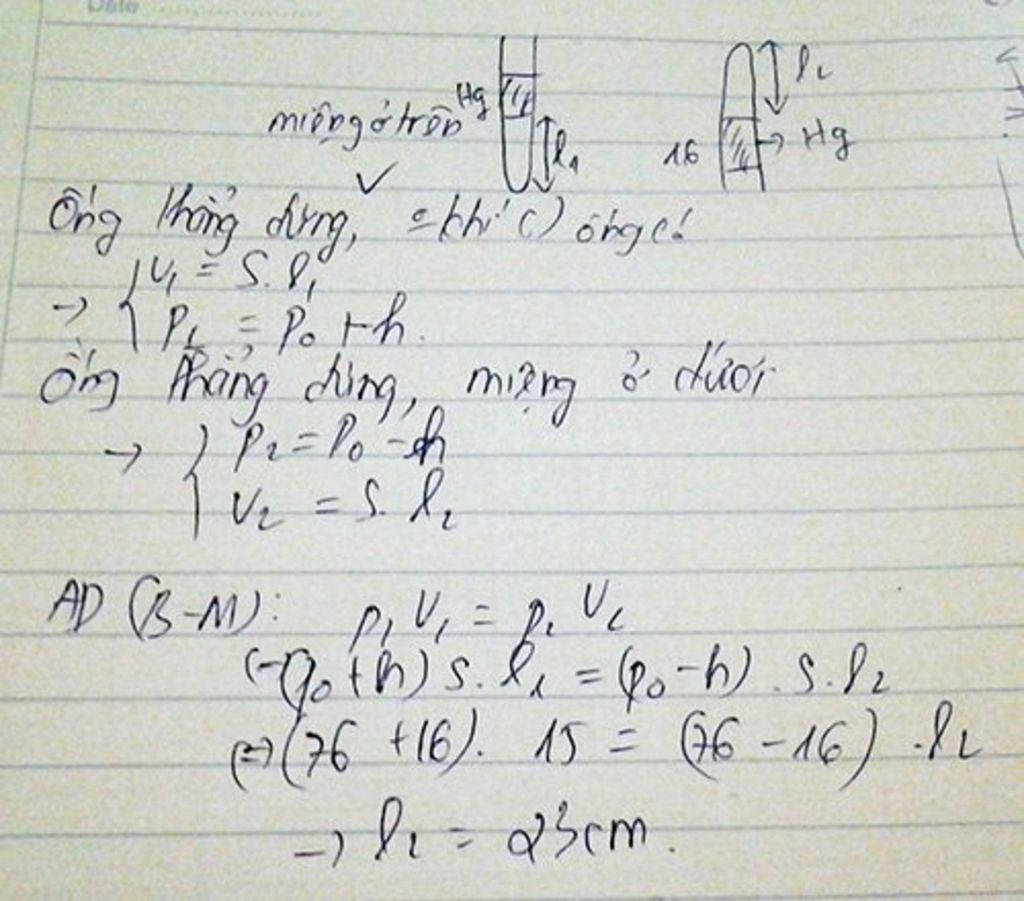 Date
miệng ở trên Hg l1 16 Hg l2
Ống thẳng đứng, khí () ống có
→ { V1 = S.l1
P1 = P0 + h.
Ống thẳng đứng, miệng ở dưới
→ { P2 = P0 - h
V2 = S. l2
AD (B-M): P1 V1 = P2 V2
(P0 + h) S. l1 = (P0 - h) . S. l2
(=) (76 + 16). 15 = (76 - 16) . l2
→ l2 = 23cm.